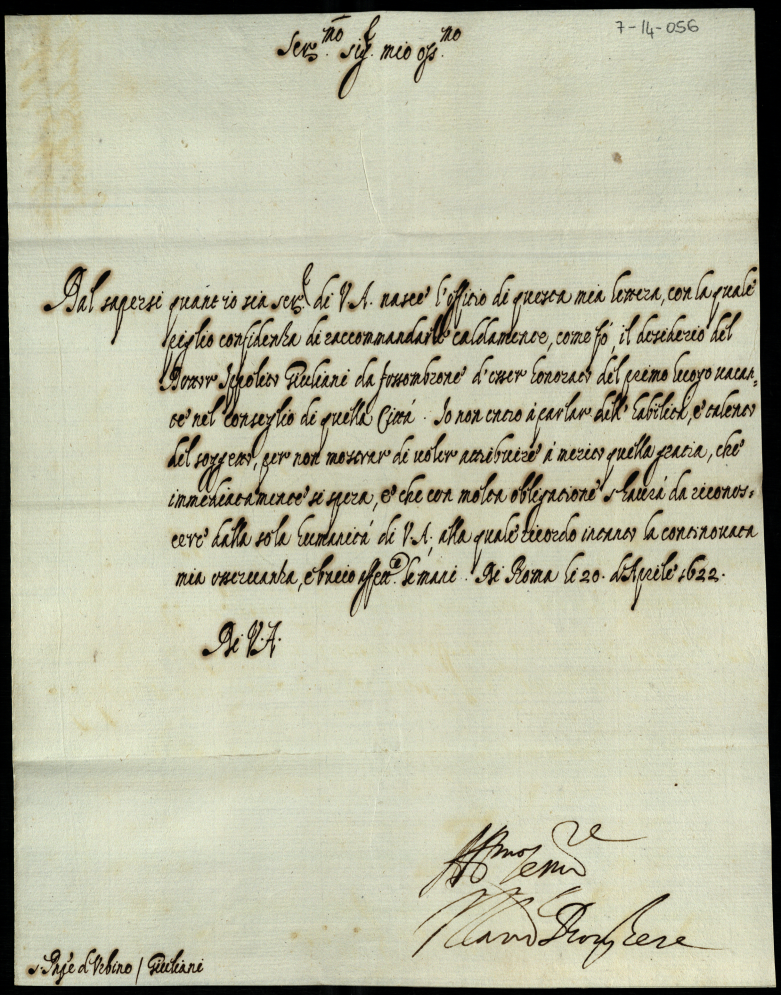 7-14-056
Ser.mo sig.r mio oss.mo
Dal sapersi quant'io sia ser.r di V.A. nasce l'offitio di questa mia lettera, con la quale
piglio confidenza di raccommandarle caldamente, come fò, il desiderio del
Dottor Ippolito Giuliani da fossombrone d'esser honorato del primo luogo vacan-
te nel conseglio di quella Città. Io non entro à parlar dell'habilità, e talento
del soggetto, per non mostrar di voler attribuire à merito quella gratia, che
immediatamente si spera, e che con molta obligatione s'haverà da riconos-
cere dalla sola humanità di V.A., alla quale ricordo intanto la continovata
mia osservanza, e bacio affett.te le mani. Di Roma li 20. d'Aprile 1622.
Di V.A.
Aff.mo ser.re
s.r Prẽ d'Urbino / Giuliani